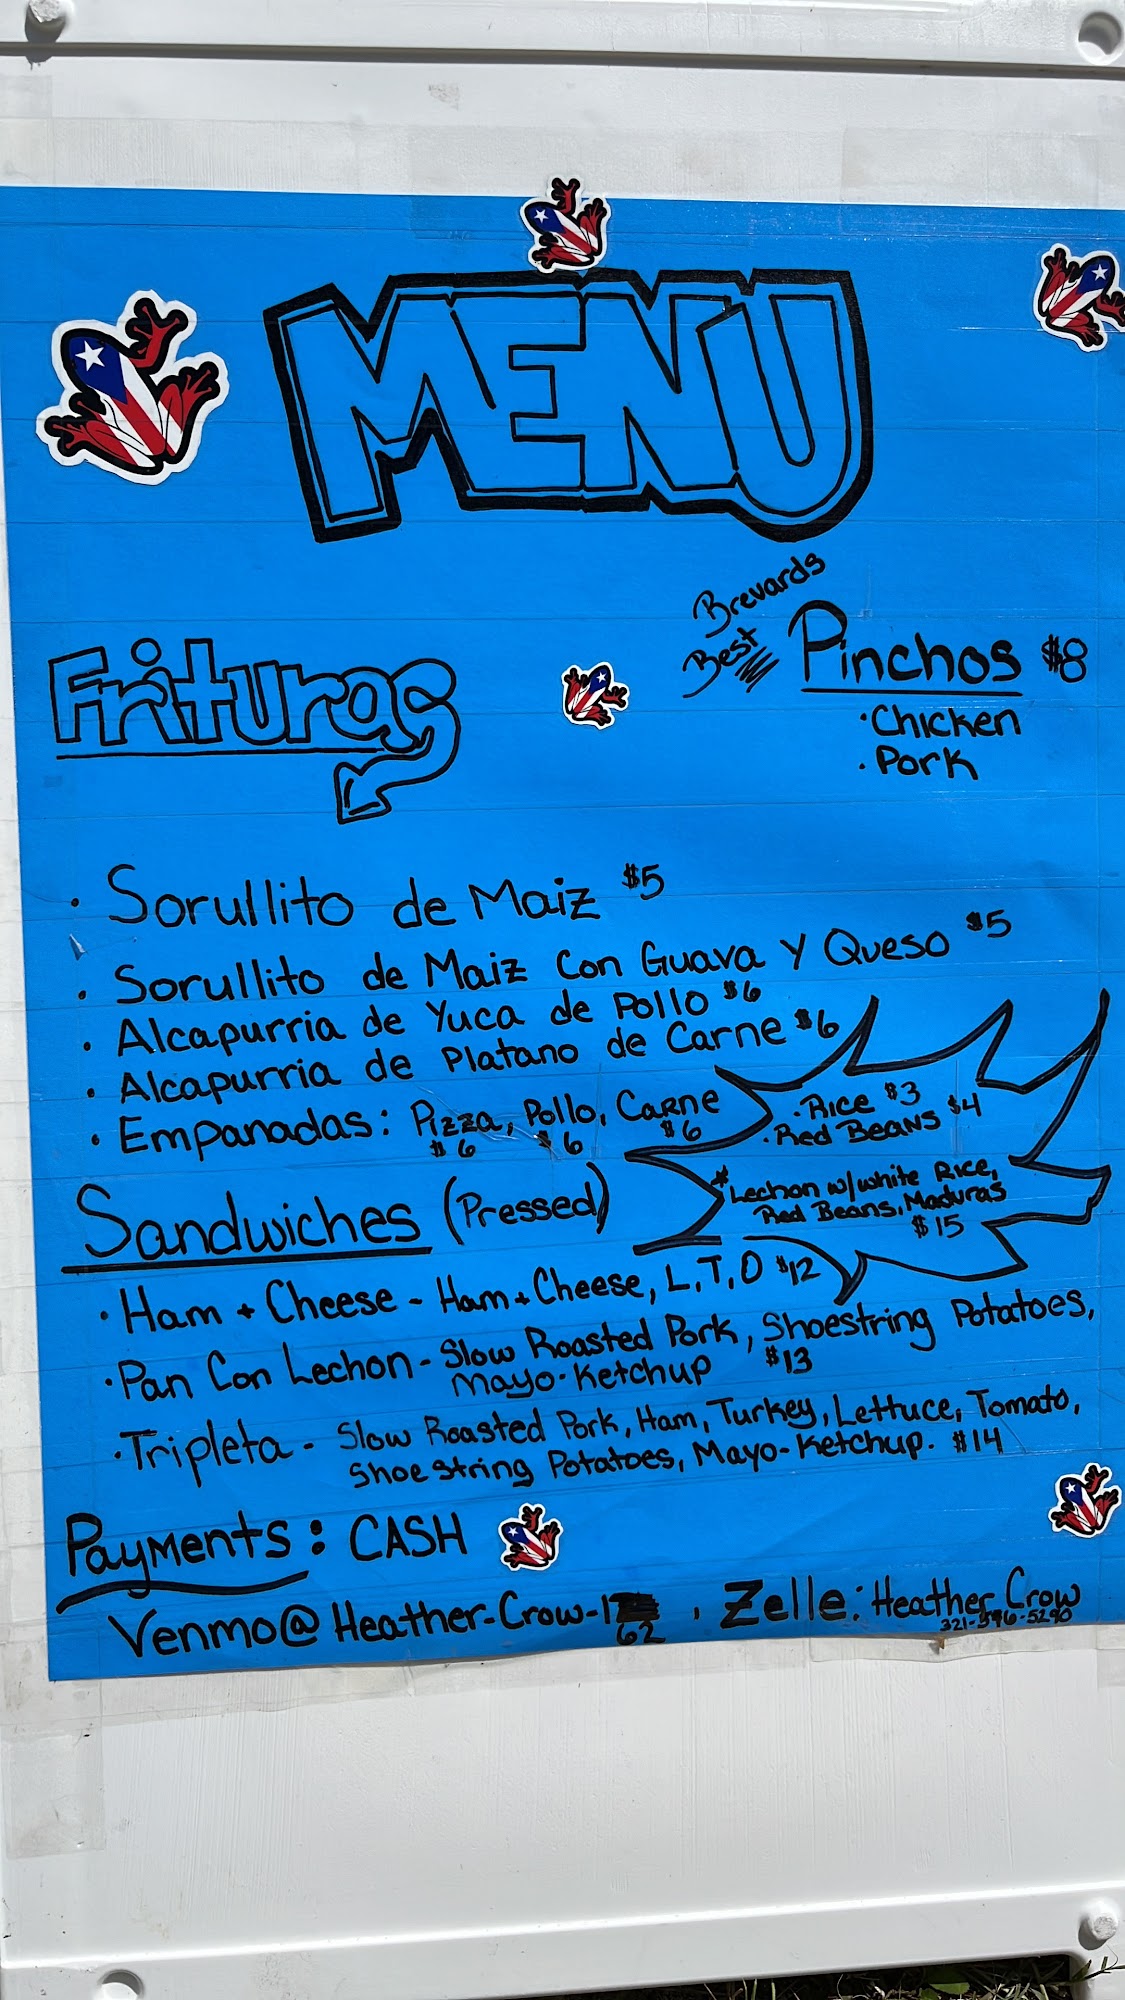 MENU
Brevards
Best
Pinchos $8
• Chicken
• Pork
Frituras
• Sorullito de Maiz $5
• Sorullito de Maiz Con Guava Y Queso $5
• Alcapurria de Yuca de Pollo $6
• Alcapurria de Platano de Carne $6
• Empanadas: Pizza, Pollo, Carne
$6 $6 $6
• Rice $3
• Red Beans $4
* Lechon w/white Rice,
Red Beans, Maduras
$15
Sandwiches (Pressed)
• Ham + Cheese - Ham + Cheese, L, T, O $12
• Pan Con Lechon - Slow Roasted Pork, Shoestring Potatoes,
Mayo-Ketchup $13
• Tripleta - Slow Roasted Pork, Ham, Turkey, Lettuce, Tomato,
Shoestring Potatoes, Mayo-Ketchup. $14
Payments: CASH
Venmo@Heather-Crow-1
62
, Zelle: Heather Crow
321-596-5290